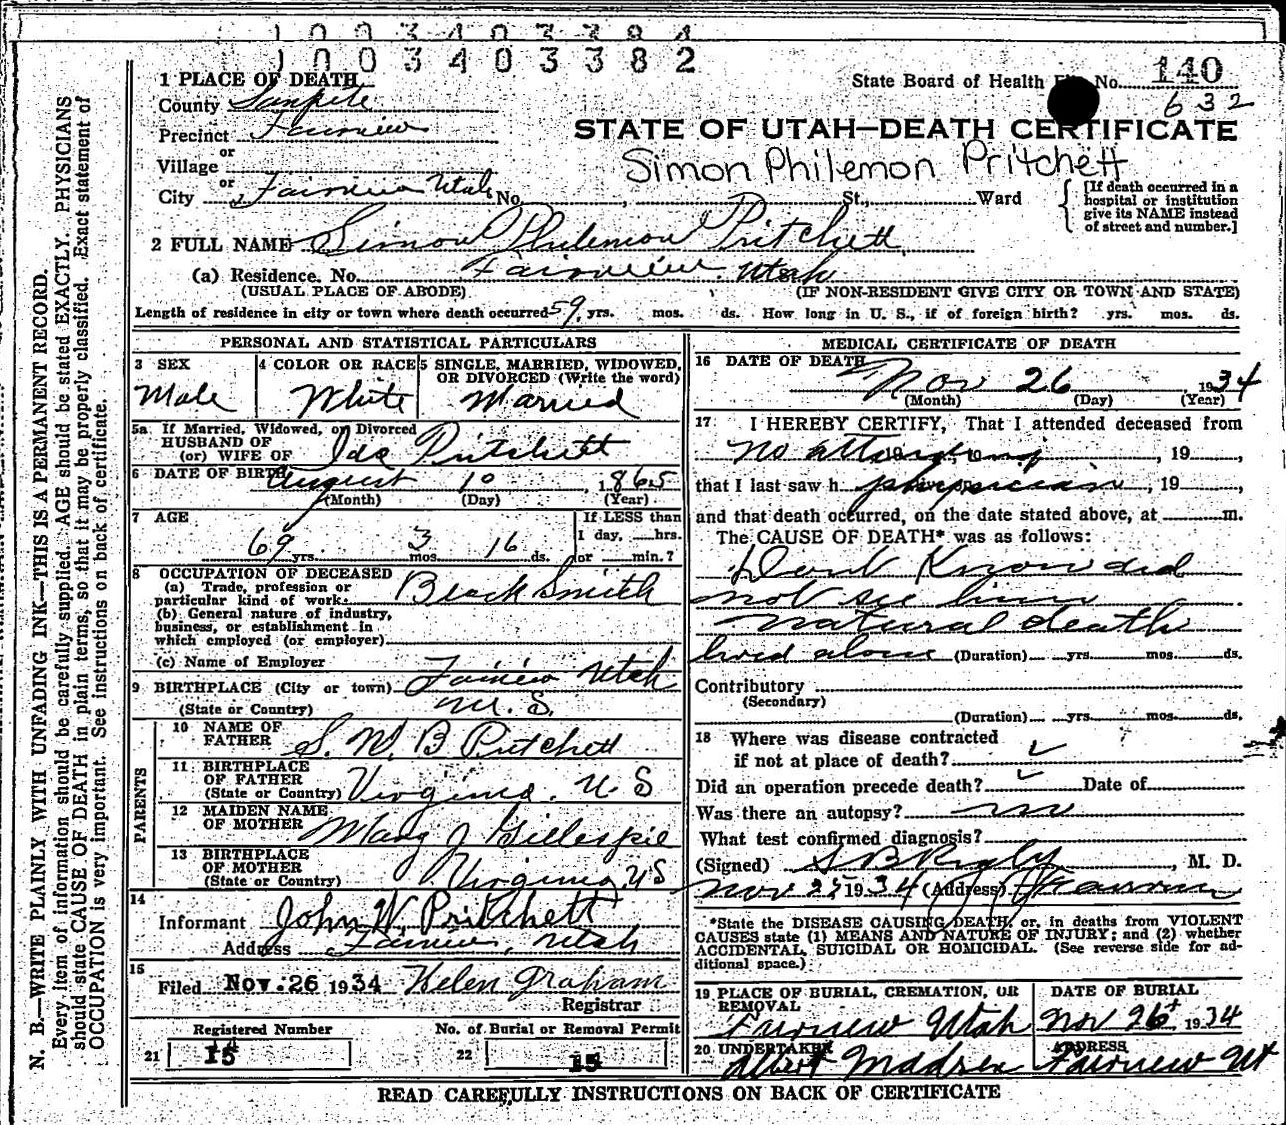 1003403384
1003403382
1 PLACE OF DEATH
State Board of Health File No. 140
632
County Sanpete
Precinct Fairview
STATE OF UTAH—DEATH CERTIFICATE
or
Village
Simon Philemon Pritchett
or
City Fairview Utah No. , St., Ward
[If death occurred in a hospital or institution give its NAME instead of street and number.]
2 FULL NAME Simon Philemon Pritchett
(a) Residence. No. Fairview. Utah
(USUAL PLACE OF ABODE) (IF NON-RESIDENT GIVE CITY OR TOWN AND STATE)
Length of residence in city or town where death occurred 59 yrs. mos. ds. How long in U. S., if of foreign birth? yrs. mos. ds.
PERSONAL AND STATISTICAL PARTICULARS
3 SEX
Male
4 COLOR OR RACE
White
5 SINGLE, MARRIED, WIDOWED,
OR DIVORCED (Write the word)
Married
5a If Married, Widowed, or Divorced
HUSBAND OF
(or) WIFE OF Ida Pritchett
6 DATE OF BIRTH August 10, 1865
(Month) (Day) (Year)
7 AGE
69 yrs 3 mos 16 ds.
If LESS than
1 day, hrs.
or min.?
8 OCCUPATION OF DECEASED
(a) Trade, profession or
particular kind of work Black Smith
(b) General nature of industry,
business, or establishment in
which employed (or employer)
(c) Name of Employer
9 BIRTHPLACE (City or town) Fairview Utah
(State or Country) U. S.
PARENTS
10 NAME OF
FATHER S. N. B Pritchett
11 BIRTHPLACE
OF FATHER
(State or Country) Virginia. U S
12 MAIDEN NAME
OF MOTHER Mary J Gillespie
13 BIRTHPLACE
OF MOTHER
(State or Country) Virginia, U S
14
Informant John W. Pritchett
Address Fairview, Utah
15
Filed Nov. 26 1934 Helen Graham
Registrar
Registered Number No. of Burial or Removal Permit
21 15 22 15
MEDICAL CERTIFICATE OF DEATH
16 DATE OF DEATH
Nov 26, 1934
(Month) (Day) (Year)
17 I HEREBY CERTIFY, That I attended deceased from
no attending , 19 ,
that I last saw h physician , 19 ,
and that death occurred, on the date stated above, at m.
The CAUSE OF DEATH* was as follows:
Dont Know did
not see him
natural death
lived alone (Duration) yrs. mos. ds.
Contributory
(Secondary)
(Duration) yrs. mos. ds.
18 Where was disease contracted
if not at place of death?
Did an operation precede death? Date of
Was there an autopsy? no
What test confirmed diagnosis?
(Signed) , M. D.
Nov 1934 (Address) Fairview
*State the DISEASE CAUSING DEATH, or, in deaths from VIOLENT
CAUSES state (1) MEANS AND NATURE OF INJURY; and (2) whether
ACCIDENTAL, SUICIDAL OR HOMICIDAL. (See reverse side for ad-
ditional space.)
19 PLACE OF BURIAL, CREMATION, OR
REMOVAL
Fairview Utah
DATE OF BURIAL
Nov 26 1934
20 UNDERTAKER
Albert Madsen
ADDRESS
Fairview Ut
READ CAREFULLY INSTRUCTIONS ON BACK OF CERTIFICATE
N. B.—WRITE PLAINLY WITH UNFADING INK—THIS IS A PERMANENT RECORD.
Every item of information should be carefully supplied. AGE should be stated EXACTLY. PHYSICIANS
should state CAUSE OF DEATH in plain terms, so that it may be properly classified. Exact statement of
OCCUPATION is very important. See instructions on back of certificate.